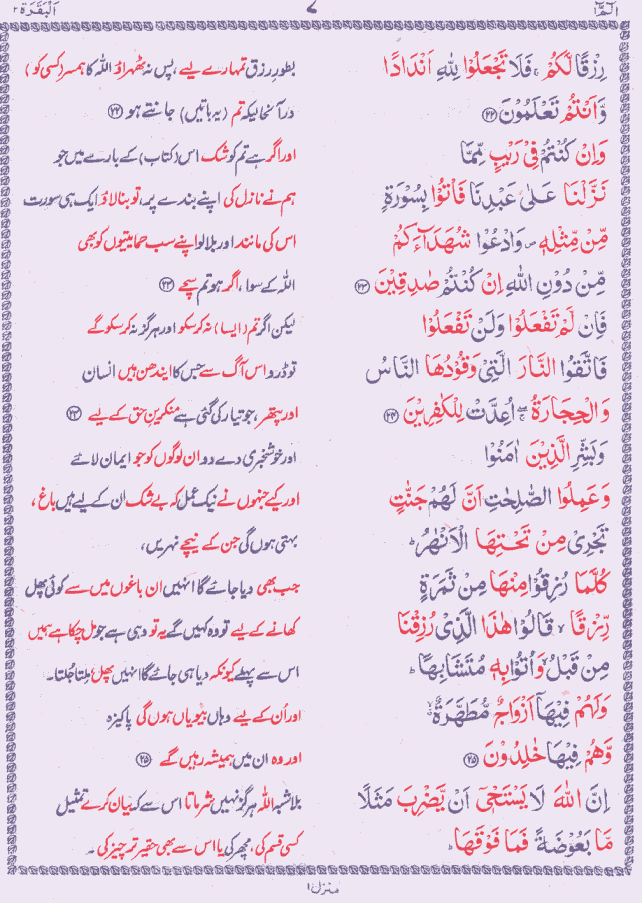 الٓمّٓ ۱
۷
اَلْبَقَرَة ۲
رِزْقًا لَّكُمْ ۚ فَلَا تَجْعَلُوْا لِلّٰهِ اَنْدَادًا
بطورِ رزق تمہارے لیے، پس نہ ٹھہراؤ اللہ کا ہمسر (کسی کو)
وَّاَنْتُمْ تَعْلَمُوْنَ ﴿۲۲﴾
درآنحالیکہ تم (یہ باتیں) جانتے ہو ﴿۲۲﴾
وَاِنْ كُنْتُمْ فِىْ رَيْبٍ مِّمَّا
اور اگر ہے تم کو شک اس (کتاب) کے بارے میں جو
نَزَّلْنَا عَلٰى عَبْدِنَا فَاْتُوْا بِسُوْرَةٍ
ہم نے نازل کی اپنے بندے پر، تو بنا لاؤ ایک ہی سورت
مِّنْ مِّثْلِهٖ ۪ وَادْعُوْا شُهَدَآءَكُمْ
اس کی مانند اور بلا لو اپنے سب حمایتیوں کو بھی
مِّنْ دُوْنِ اللّٰهِ اِنْ كُنْتُمْ صٰدِقِيْنَ ﴿۲۳﴾
اللہ کے سوا، اگر ہو تم سچے ﴿۲۳﴾
فَاِنْ لَّمْ تَفْعَلُوْا وَلَنْ تَفْعَلُوْا
لیکن اگر تم (ایسا) نہ کر سکو اور ہرگز نہ کر سکو گے
فَاتَّقُوا النَّارَ الَّتِىْ وَقُوْدُهَا النَّاسُ
تو ڈرو اس آگ سے جس کا ایندھن ہیں انسان
وَالْحِجَارَةُ ۖۚ اُعِدَّتْ لِلْكٰفِرِيْنَ ﴿۲۴﴾
اور پتھر، جو تیار کی گئی ہے منکرینِ حق کے لیے ﴿۲۴﴾
وَبَشِّرِ الَّذِيْنَ اٰمَنُوْا
اور خوشخبری دے دو ان لوگوں کو جو ایمان لائے
وَعَمِلُوا الصّٰلِحٰتِ اَنَّ لَهُمْ جَنّٰتٍ
اور کیے جنہوں نے نیک عمل کہ بے شک ان کے لیے ہیں باغ،
تَجْرِىْ مِنْ تَحْتِهَا الْاَنْهٰرُ ؕ
بہتی ہوں گی جن کے نیچے نہریں،
كُلَّمَا رُزِقُوْا مِنْهَا مِنْ ثَمَرَةٍ
جب بھی دیا جائے گا انہیں ان باغوں میں سے کوئی پھل
رِّزْقًا ۙ قَالُوْا هٰذَا الَّذِىْ رُزِقْنَا
کھانے کے لیے تو وہ کہیں گے یہ تو وہی ہے جو مل چکا ہے ہمیں
مِنْ قَبْلُ ۙ وَاُتُوْا بِهٖ مُتَشَابِهًا ؕ
اس سے پہلے کیونکہ دیا ہی جائے گا انہیں پھل ملتا جُلتا۔
وَلَهُمْ فِيْهَآ اَزْوَاجٌ مُّطَهَّرَةٌ ۙ
اور اُن کے لیے وہاں بیویاں ہوں گی پاکیزہ
وَّهُمْ فِيْهَا خٰلِدُوْنَ ﴿۲۵﴾
اور وہ ان میں ہمیشہ رہیں گے ﴿۲۵﴾
اِنَّ اللّٰهَ لَا يَسْتَحْىٖٓ اَنْ يَّضْرِبَ مَثَلًا
بلاشبہ اللہ ہرگز نہیں شرماتا اس سے کہ بیان کرے تمثیل
مَّا بَعُوْضَةً فَمَا فَوْقَهَا ؕ
کسی قسم کی، مچھر کی یا اس سے بھی حقیر تر چیز کی۔
منزل ۱